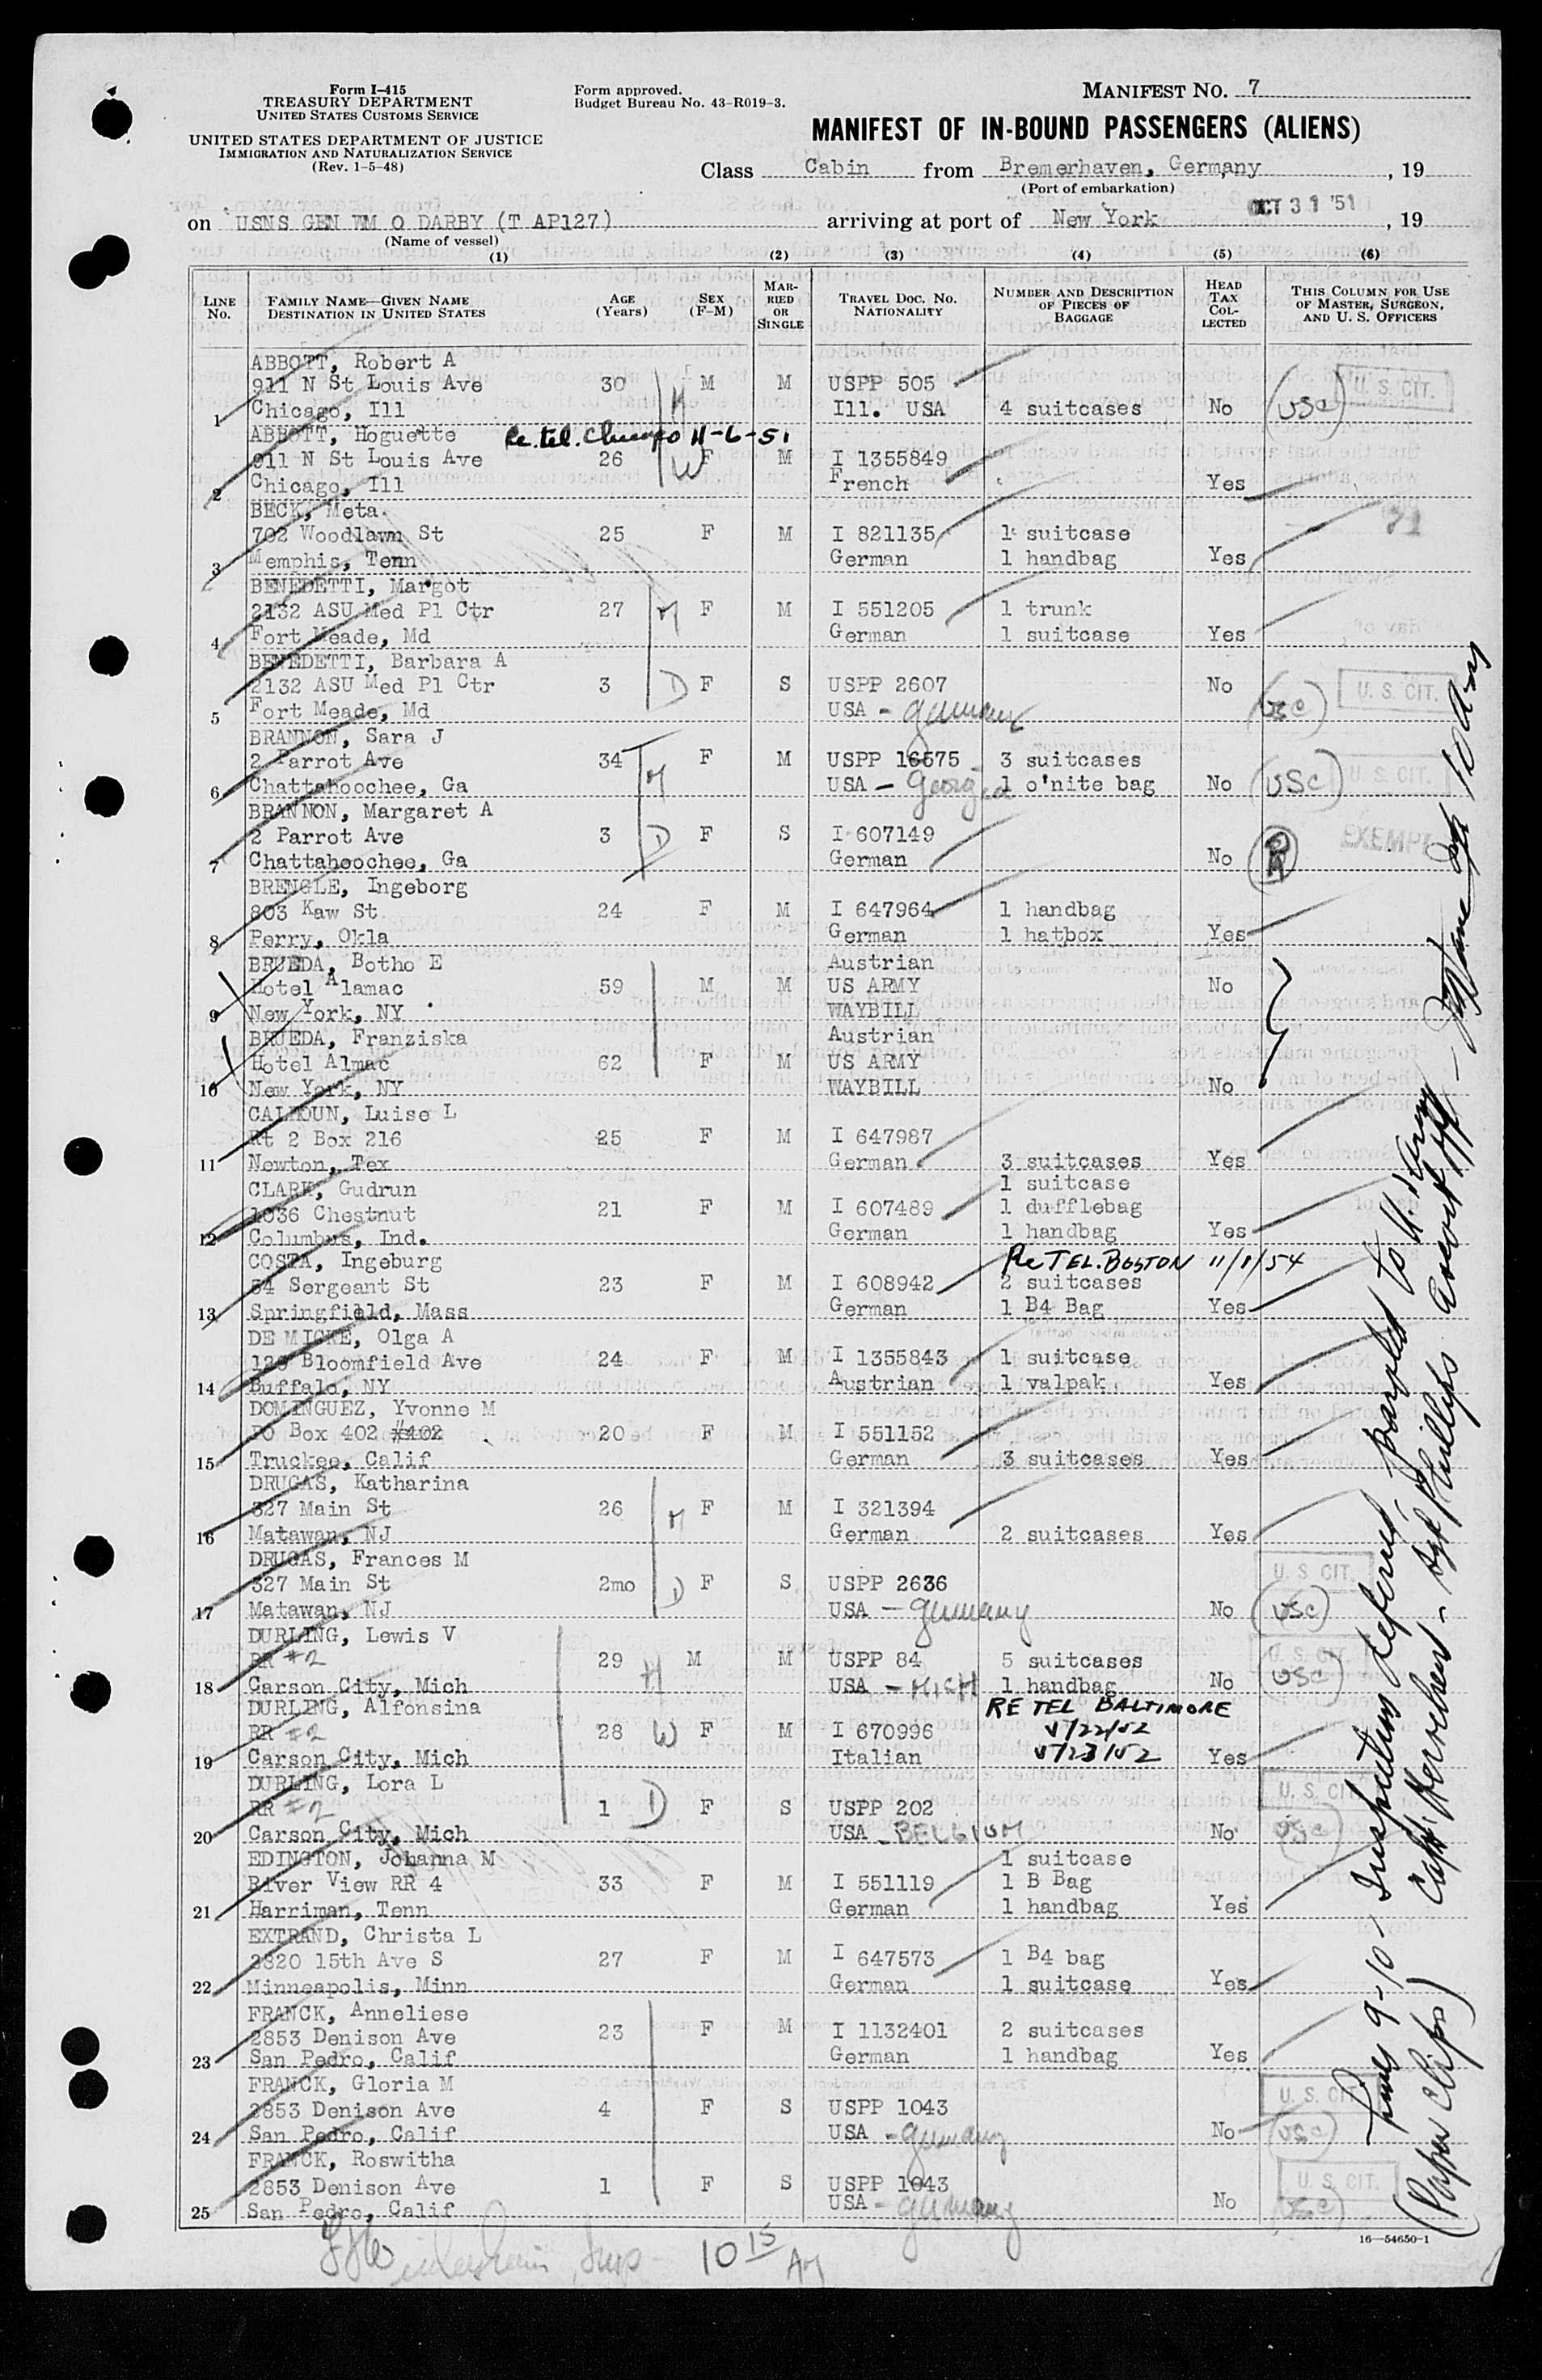 Form I-415
TREASURY DEPARTMENT
UNITED STATES CUSTOMS SERVICE
UNITED STATES DEPARTMENT OF JUSTICE
IMMIGRATION AND NATURALIZATION SERVICE
(Rev. 1-5-48)
Form approved.
Budget Bureau No. 43-R019-3.
MANIFEST NO. 7
MANIFEST OF IN-BOUND PASSENGERS (ALIENS)
Class Cabin from Bremerhaven, Germany, 19
(Port of embarkation)
on USNS GEN WM O DARBY (T AP127) arriving at port of New York OCT 31 '51, 19
(Name of vessel)
(1) (2) (3) (4) (5) (6)
LINE NO. FAMILY NAME—GIVEN NAME DESTINATION IN UNITED STATES AGE (YEARS) SEX (F-M) MARRIED OR SINGLE TRAVEL DOC. NO. NATIONALITY NUMBER AND DESCRIPTION OF PIECES OF BAGGAGE HEAD TAX COLLECTED THIS COLUMN FOR USE OF MASTER, SURGEON, AND U. S. OFFICERS
ABBOTT, Robert A
911 N St Louis Ave 30 H M M USPP 505 U. S. CIT.
1 Chicago, Ill Ill. USA 4 suitcases No USC
ABBOTT, Hoguette Re. tel. Chicago 11-6-51
911 N St Louis Ave 26 W F M I 1355849
2 Chicago, Ill French Yes
BECK, Meta
702 Woodlawn St 25 F M I 821135 1 suitcase
3 Memphis, Tenn German 1 handbag Yes
BENEDETTI, Margot
2132 ASU Med Pl Ctr 27 M F M I 551205 1 trunk
4 Fort Meade, Md German 1 suitcase Yes
BENEDETTI, Barbara A
2132 ASU Med Pl Ctr 3 D F S USPP 2607 No U. S. CIT.
5 Fort Meade, Md USA - Germany USC
BRANNON, Sara J
2 Parrot Ave 34 M F M USPP 16575 3 suitcases U. S. CIT.
6 Chattahoochee, Ga USA - Georgia 1 o'nite bag No USC
BRANNON, Margaret A
2 Parrot Ave 3 D F S I 607149 EXEMPT
7 Chattahoochee, Ga German No
BRENGLE, Ingeborg
803 Kaw St 24 F M I 647964 1 handbag
8 Perry, Okla German 1 hatbox Yes
BRUEDA, Botho E Austrian
Hotel Alamac 59 M M US ARMY No
9 New York, NY WAYBILL
BRUEDA, Franziska Austrian
Hotel Almac 62 F M US ARMY
10 New York, NY WAYBILL No
CALHOUN, Luise L
Rt 2 Box 216 25 F M I 647987
11 Newton, Tex German 3 suitcases Yes
CLARK, Gudrun 1 suitcase
1036 Chestnut 21 F M I 607489 1 dufflebag
12 Columbus, Ind. German 1 handbag Yes
COSTA, Ingeburg Re TEL. BOSTON 11/1/54
54 Sergeant St 23 F M I 608942 2 suitcases
13 Springfield, Mass German 1 B4 Bag Yes
DE MICKE, Olga A
Bloomfield Ave 24 F M I 1355843 1 suitcase
14 Buffalo, NY Austrian 1 valpak Yes
DOMINGUEZ, Yvonne M
PO Box 402 #402 20 F M I 551152
15 Truckee, Calif German 3 suitcases Yes
DRUGAS, Katharina
327 Main St 26 M F M I 321394
16 Matawan, NJ German 2 suitcases Yes
DRUGAS, Frances M U. S. CIT.
327 Main St 2mo D F S USPP 2636
17 Matawan, NJ USA - Germany No USC
DURLING, Lewis V
RR #2 29 H M M USPP 84 5 suitcases U. S. CIT.
18 Carson City, Mich USA - MICH 1 handbag No USC
DURLING, Alfonsina RE TEL BALTIMORE
RR #2 28 W F M I 670996 5/22/52
19 Carson City, Mich Italian 5/23/52 Yes
DURLING, Lora L U. S. CIT.
RR #2 1 D F S USPP 202
20 Carson City, Mich USA - BELGIUM No USC
EDINGTON, Johanna M 1 suitcase
River View RR 4 33 F M I 551119 1 B Bag
21 Harriman, Tenn German 1 handbag Yes
EXTRAND, Christa L
2820 15th Ave S 27 F M I 647573 1 B4 bag
22 Minneapolis, Minn German 1 suitcase Yes
FRANCK, Anneliese
2853 Denison Ave 23 F M I 1132401 2 suitcases
23 San Pedro, Calif German 1 handbag Yes
FRANCK, Gloria M U. S. CIT.
2853 Denison Ave 4 F S USPP 1043
24 San Pedro, Calif USA - Germany No USC
FRANCK, Roswitha U. S. CIT.
2853 Denison Ave 1 F S USPP 1043
25 San Pedro, Calif USA - Germany No USC
16—54650-1
10 15 AM
Lines 9-10 - Inspection deferred, paroled to U.S. Army
Capt. - Sgt Phillips Escort off -
(Paper clips)